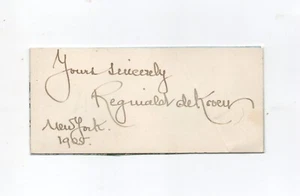 Yours sincerely
Reginald de Koven
New York.
1905.